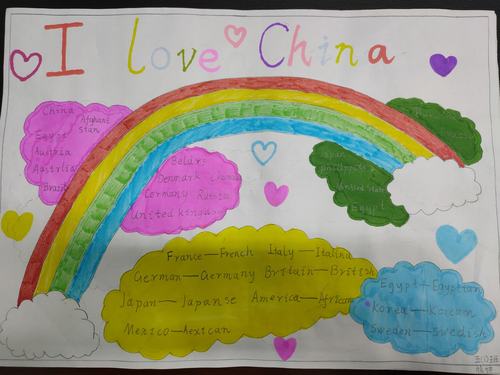 I love China
China
Afghani
stan
Egypt
Austria
Australia
Brazil
Denmark
Germany Russia
United kingdo
Japan
philippines
United States
Egypt
France—French Italy—Italina
German—Germany Britain—British
Japan—Japanse America—African
Mexico—Aexican
Egypt—Egyptian
Korea—Korean
Sweden—Swedish